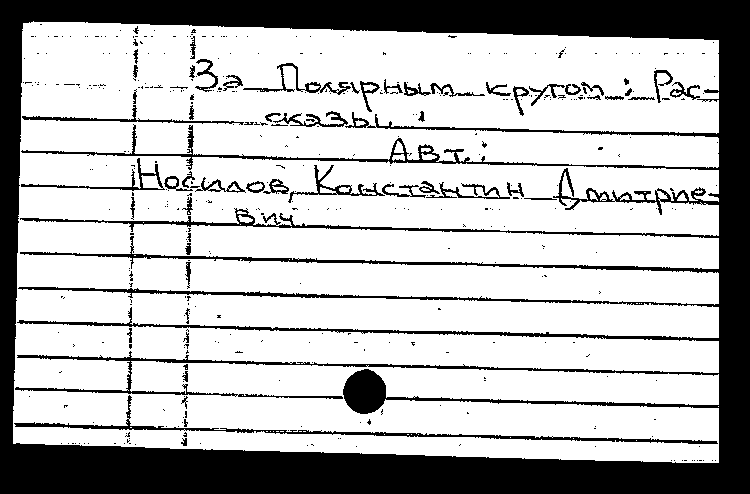 За Полярным кругом: Рас-
сказы.
Авт.:
Носилов, Константин Дмитрие-
вич.